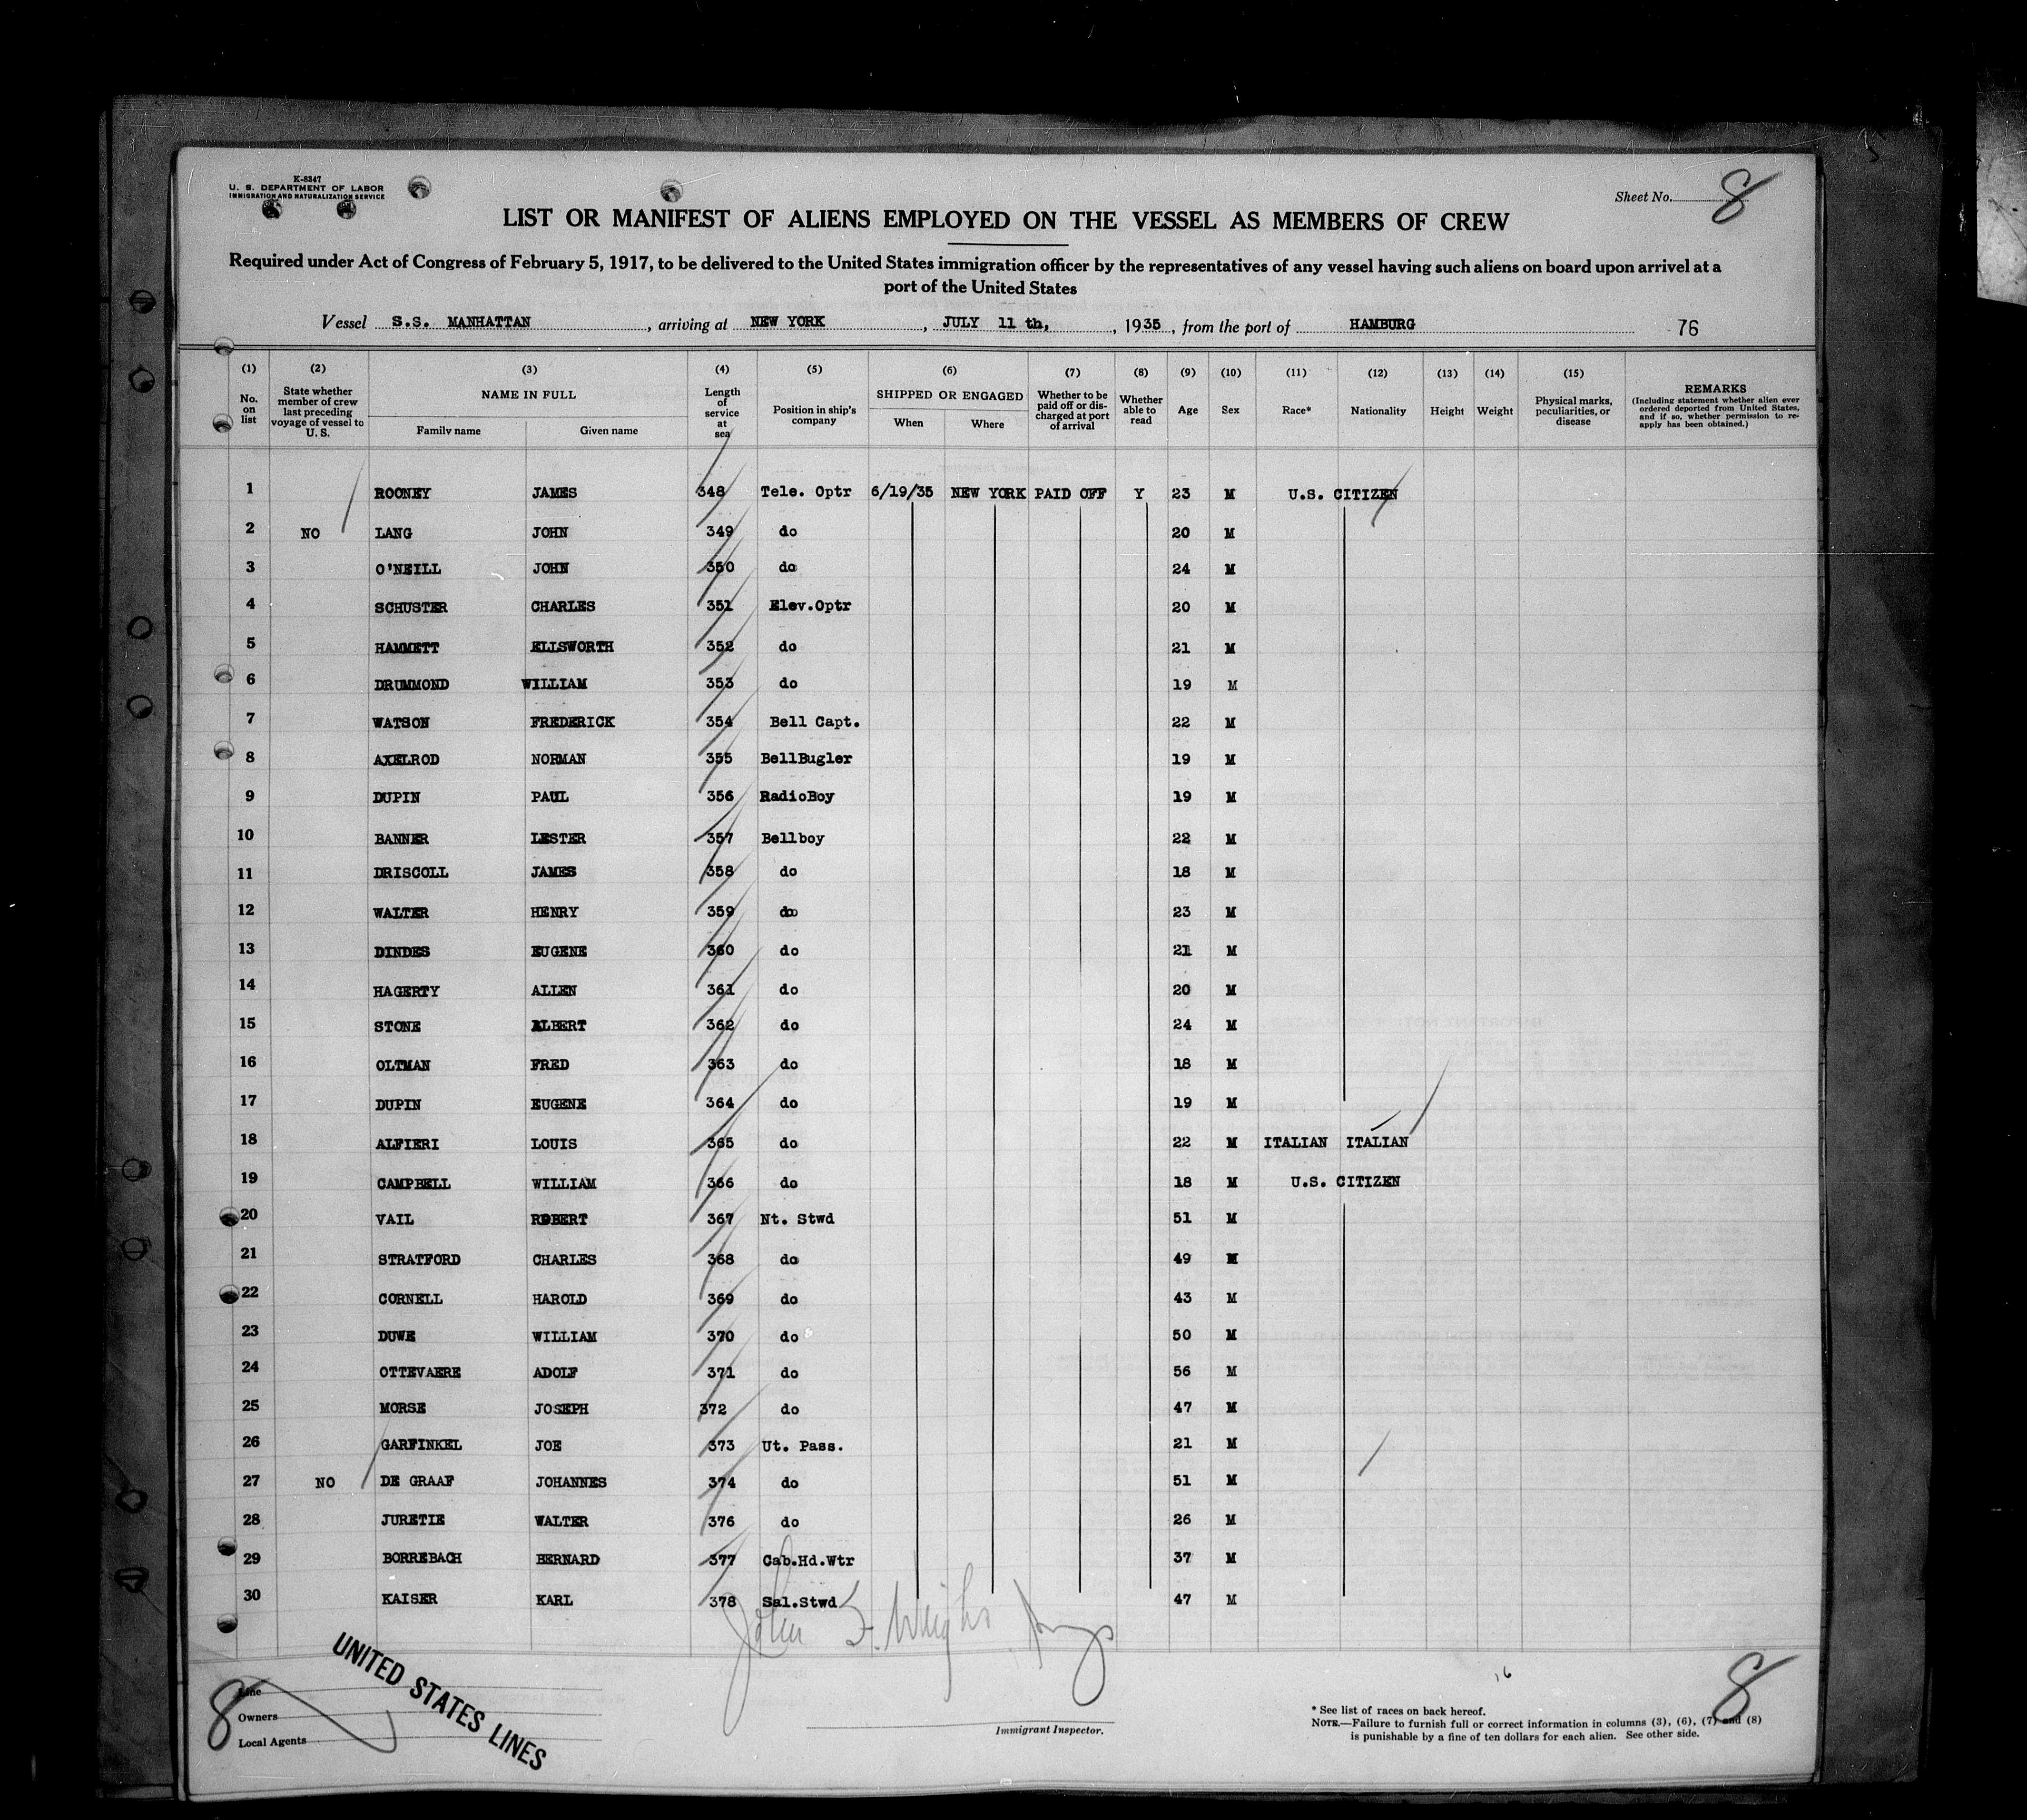 K-8347
U. S. DEPARTMENT OF LABOR
IMMIGRATION AND NATURALIZATION SERVICE
Sheet No. 8
LIST OR MANIFEST OF ALIENS EMPLOYED ON THE VESSEL AS MEMBERS OF CREW
Required under Act of Congress of February 5, 1917, to be delivered to the United States immigration officer by the representatives of any vessel having such aliens on board upon arrivel at a
port of the United States
Vessel S.S. MANHATTAN, arriving at NEW YORK, JULY 11 th, 1935, from the port of HAMBURG 76
(1) (2) (3) (4) (5) (6) (7) (8) (9) (10) (11) (12) (13) (14) (15)
No. on list
State whether member of crew last preceding voyage of vessel to U. S.
NAME IN FULL
Family name Given name
Length of service at sea
Position in ship's company
SHIPPED OR ENGAGED
When Where
Whether to be paid off or discharged at port of arrival
Whether able to read
Age
Sex
Race*
Nationality
Height
Weight
Physical marks, peculiarities, or disease
REMARKS
(Including statement whether alien ever ordered deported from United States, and if so, whether permission to reapply has been obtained.)
1 ROONEY JAMES 348 Tele. Optr 6/19/35 NEW YORK PAID OFF Y 23 M U.S. CITIZEN
2 NO LANG JOHN 349 do 20 M
3 O'NEILL JOHN 350 do 24 M
4 SCHUSTER CHARLES 351 Elev.Optr 20 M
5 HAMMETT ELLSWORTH 352 do 21 M
6 DRUMMOND WILLIAM 353 do 19 M
7 WATSON FREDERICK 354 Bell Capt. 22 M
8 AXELROD NORMAN 355 BellBugler 19 M
9 DUPIN PAUL 356 RadioBoy 19 M
10 BANNER LESTER 357 Bellboy 22 M
11 DRISCOLL JAMES 358 do 18 M
12 WALTER HENRY 359 do 23 M
13 DINDES EUGENE 360 do 21 M
14 HAGERTY ALLEN 361 do 20 M
15 STONE ALBERT 362 do 24 M
16 OLTMAN FRED 363 do 18 M
17 DUPIN EUGENE 364 do 19 M
18 ALFIERI LOUIS 365 do 22 M ITALIAN ITALIAN
19 CAMPBELL WILLIAM 366 do 18 M U.S. CITIZEN
20 VAIL ROBERT 367 Nt. Stwd 51 M
21 STRATFORD CHARLES 368 do 49 M
22 CORNELL HAROLD 369 do 43 M
23 DUWE WILLIAM 370 do 50 M
24 OTTEVAERE ADOLF 371 do 56 M
25 MORSE JOSEPH 372 do 47 M
26 GARFINKEL JOE 373 Ut. Pass. 21 M
27 NO DE GRAAF JOHANNES 374 do 51 M
28 JURETIE WALTER 376 do 26 M
29 BORREBACH BERNARD 377 Cab.Hd.Wtr 37 M
30 KAISER KARL 378 Sal.Stwd 47 M
John
8 8
Line
Owners
Local Agents
UNITED STATES LINES
Immigrant Inspector.
* See list of races on back hereof.
NOTE.—Failure to furnish full or correct information in columns (3), (6), (7) and (8)
is punishable by a fine of ten dollars for each alien. See other side.